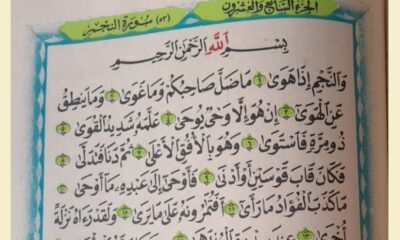 الجزء السابع والعشرون (٥٣) سورة النجم
بِسْمِ اللَّهِ الرَّحْمَنِ الرَّحِيمِ
وَالنَّجْمِ إِذَا هَوَىٰ ١ مَا ضَلَّ صَاحِبُكُمْ وَمَا غَوَىٰ ٢ وَمَا يَنْطِقُ
عَنِ الْهَوَىٰ ٣ إِنْ هُوَ إِلَّا وَحْيٌ يُوحَىٰ ٤ عَلَّمَهُ شَدِيدُ الْقُوَىٰ ٥
ذُو مِرَّةٍ فَاسْتَوَىٰ ٦ وَهُوَ بِالْأُفُقِ الْأَعْلَىٰ ٧ ثُمَّ دَنَا فَتَدَلَّىٰ ٨
فَكَانَ قَابَ قَوْسَيْنِ أَوْ أَدْنَىٰ ٩ فَأَوْحَىٰ إِلَىٰ عَبْدِهِ مَا أَوْحَىٰ ١٠
مَا كَذَبَ الْفُؤَادُ مَا رَأَىٰ ١١ أَفَتُمَارُونَهُ عَلَىٰ مَا يَرَىٰ ١٢ وَلَقَدْ رَآهُ نَزْلَةً
أُخْرَىٰ ١٣ عِنْدَ